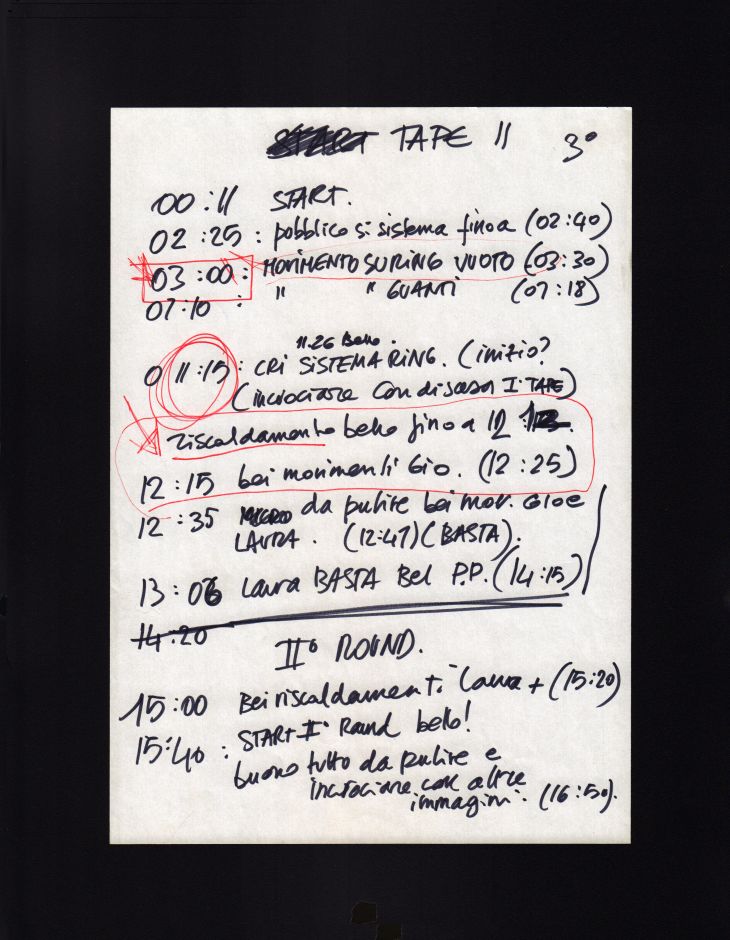 TAPE II 3°
00:11 START.
02:25: pobblico si sistema fino a (02:40)
03:00: MOVIMENTO SU RING VUOTO (03:30)
07:10 : " " GUANTI (07:18)
11.26 Bello.
0 11:15: CRI SISTEMA RING. (inizio?
(incrociare con discesa I° TAPE)
riscaldamento bello fino a 12
12:15 bei movimenti Gio. (12:25)
12:35 MICRO da pulire bei mov. GIO e
LAURA. (12:47) (BASTA).
13:06 Laura BASTA Bel P.P. (14:15)
14:20
II° ROUND.
15:00 Bei riscaldamenti Laura + (15:20)
15:40 : START II° Round bello!
buono tutto da pulire e
incrociare con altre
immagini. (16:50).